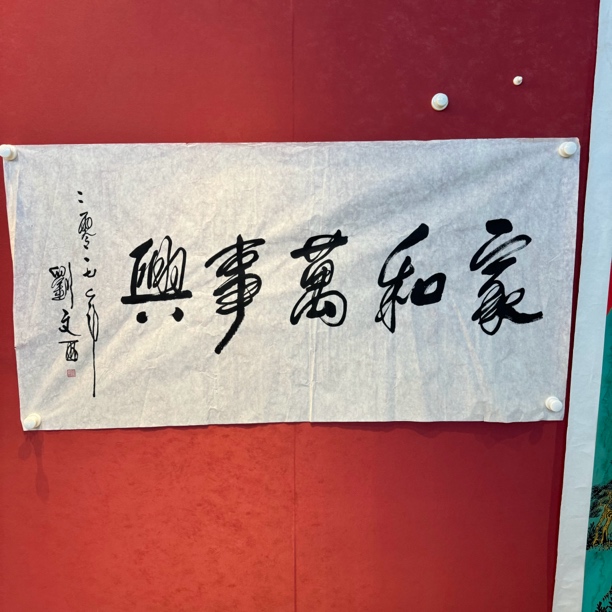 家和萬事興
二零一七年
劉文西